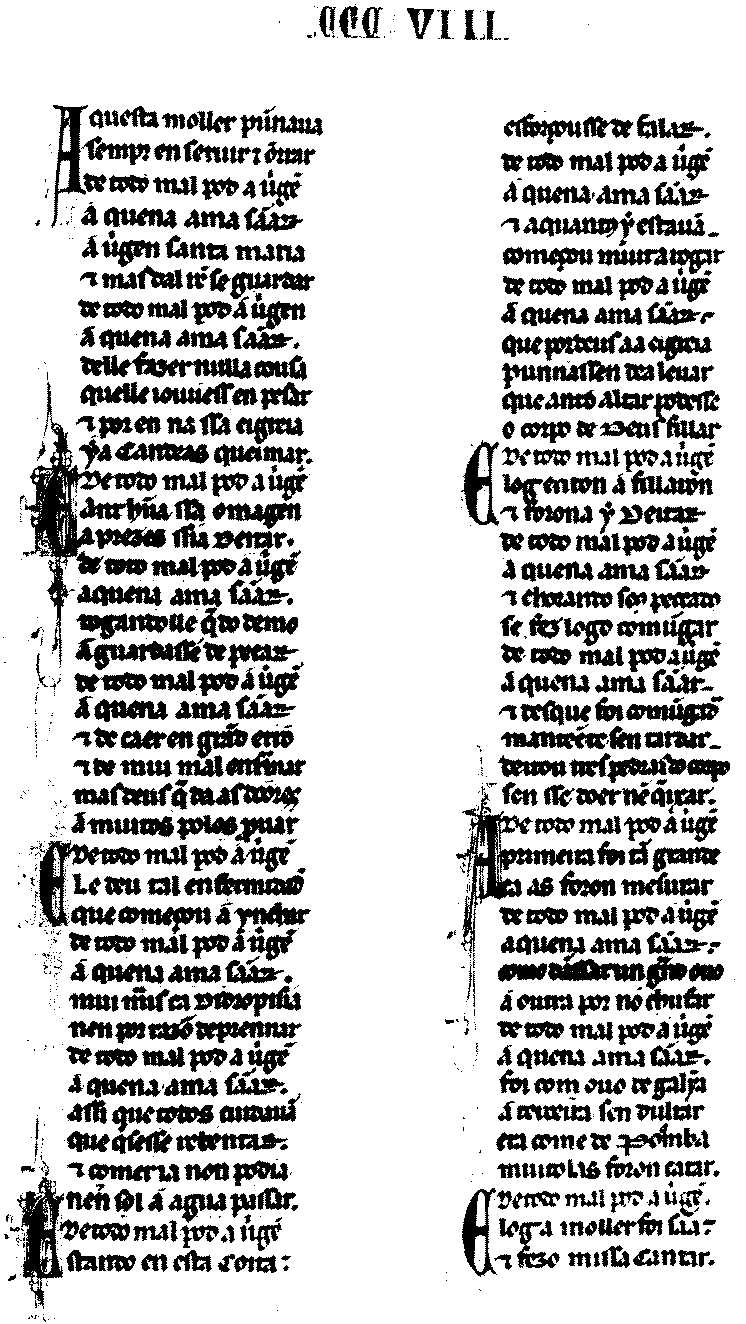 CCC VIIII
Aquesta moller punnaua
sempr en seruir ⁊ õrrar
de todo mal pod a uigẽ
á quena ama sãar
á uigen santa maria
⁊ mas dal re se guardar
de todo mal pod á uigen
á quena ama sãar.
delle fazer nulla cousa
quelle iouuess en pesar
⁊ por en na ssa eigreia
ya Candeas queimar.
De todo mal pod a uigẽ
ant hũa ssa omagen
a prezes ssũa Deitar.
de todo mal pod a uigẽ
a quena ama sãar.
rogandolle q̃ do demo
á guardasse de pecar
de todo mal pod á uigẽ
á quena ama sãar
⁊ de caer en grãd erro
⁊ de mui mal enfermar
mas deus q̃ da as doores
á muitos polos prouar
De todo mal pod á uigẽ
E Le deu tal enfermidade
que começou á ynchar
de todo mal pod á uigẽ
á quena ama sãar.
mui mais ca ydropisia
nen por razõ de prennar
de todo mal pod a uigẽ
á quena ama sãar.
assi que todos cuidauã
que q̃sesse rebentar.
⁊ comer ia non podia
nen sol á agua passar.
De todo mal pod a uigẽ
Estando en esta Coita:
esforçousse de falar.
de todo mal pod a uigẽ
á quena ama sãar
⁊ a quantos y estauã
começou muit a rogar
de todo mal pod a uigẽ
á quena ama sãar
que por deus aa eigreia
punnassen dea leuar
que ant o Altar podesse
o corpo de Deus fillar
De todo mal pod a uigẽ
E log enton á fillarõn
⁊ forona y Deitar
de todo mal pod a uigẽ
á quena ama sãar
⁊ chorando seu peccado
se fez logo comũgar
de todo mal pod a uigẽ
á quena ama sãar
⁊ des que foi comũgada
manteẽte sen tardar
deitou tres pedras do corpo
sen sse doer nẽ q̃ixar.
De todo mal pod á uigẽ
A primeira foi tã grande
ca as foron mesurar
de todo mal pod a uigẽ
a quena ama sãar
como dãssar un grãd ouo
á outra por nõ chufar
de todo mal pod a uigẽ
á quena ama sãar.
foi com ouo de galỹa
á terceira sen dultar
era come de Põmba
muito las foron catar.
De todo mal pod a uigẽ.
E log a moller foi sãa:
⁊ fezo missa Cantar.